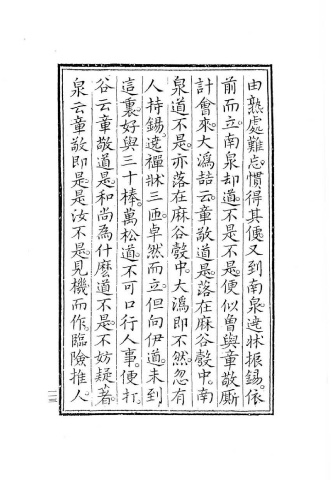 由熟處難忘。慣得其便。又到南泉遶牀振錫。依
前而立。南泉却道不是不是。便似曾與章敬厮
計會來。大溈喆云。章敬道是。落在麻谷彀中。南
泉道不是。亦落在麻谷彀中。大溈即不然。忽有
人持錫。遶禪牀三匝。卓然而立。但向伊道。未到
這裏。好與三十棒。萬松道。不可口行人事。便打。
谷云。章敬道是。和尚為什麼道不是。不妨疑著。
泉云。章敬即是。是汝不是。見機而作。臨險推人。
一二五